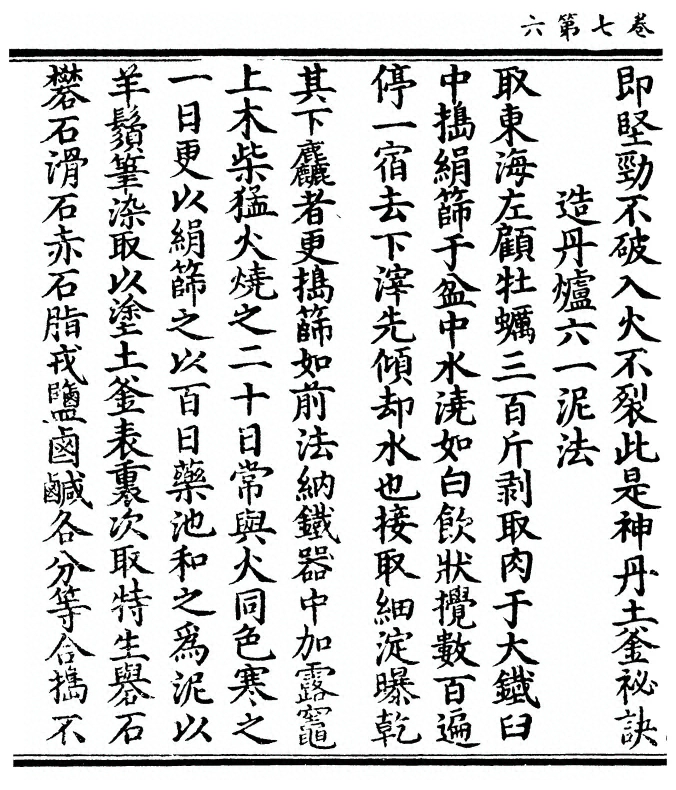 卷七第六
即堅勁不破入火不裂此是神丹土釜祕訣
造丹爐六一泥法
取東海左顧牡蠣三百斤剥取肉于大鐵臼
中擣絹篩于盆中水澆如白飲狀攪數百遍
停一宿去下滓先傾却水也接取細淀曝乾
其下麤者更擣篩如前法納鐵器中加露竈
上木柴猛火燒之二十日常與火同色寒之
一日更以絹篩之以百日藥池和之爲泥以
羊鬚筆染取以塗土釜表裏次取特生礜石
礬石滑石赤石脂戎鹽鹵鹹各分等合擣不